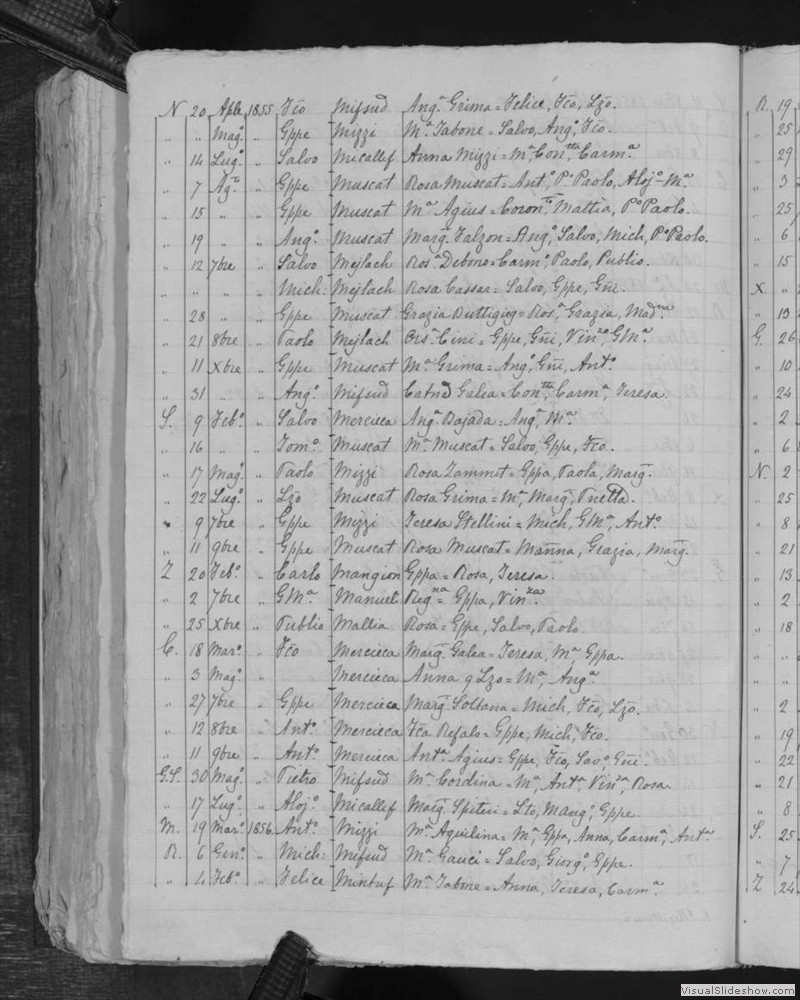 N 20 Aple 1855 Fco Mifsud Angª Grima = Felice, Fco, Lzo.
" " Magº " Gppe Mizzi Mª Tabone = Salvo, Angº, Fco.
" 14 Lugº " Salvo Micallef Anna Mizzi = Mª, Contta, Carmª.
" 7 Agto " Gppe Muscat Rosa Muscat = Antº, Pº Paolo, Alojº Mª
" 15 " " Gppe Muscat Mª Agius = Mattia, Pº Paolo.
" 19 " " Angº Muscat Marg. Falzon = Angº, Salvo, Mich, Pº Paolo.
" 12 7bre " Salvo Mejlach Rosª Debono = Carmº, Paolo, Publio.
" " " " Mich: Mejlach Rosa Cassar = Salvo, Gppe, Gñi.
" 28 " " Gppe Muscat Grazia Buttigieg = Rosª, Grazia, Madna
" 21 8bre " Paolo Mejlach Orsª Cini = Gppe, Gñi, Vinzo, GMª.
" 11 Xbre " Gppe Muscat Mª Grima = Angº, Gñi, Antº.
" 31 " " Angº Mifsud Catna Galea = Contta, Carmª, Teresa.
S. 9 Febº " Salvo Mercieca Angª Bajada = Angª, Mª.
" 16 " " Tomº Muscat Mª Muscat = Salvo, Gppe, Fco.
" 17 Magº " Paolo Mizzi Rosa Zammit = Gppa, Paola, Marg.
" 22 Lugº " Lzo Muscat Rosa Grima = Mª, Marg,
" 9 7bre " Gppe Mizzi Teresa Stellini = Mich, GMª, Antº.
" 11 9bre " Gppe Muscat Rosa Muscat = Marina, Grazia, Marg.
Z 20 Febº " Carlo Mangion Gppa = Rosa, Teresa.
" 2 7bre " GMª Manuel Regna = Gppa, Vinza.
" 25 Xbre " Publio Mallia Rosa = Gppe, Salvo, Paolo.
C. 18 Marº " Fco Mercieca Marg. Galea = Teresa, Mª, Gppa.
" 3 Magº Mercieca Anna q Lzo = Mª, Angª
" 27 7bre " Gppe Mercieca Marg. Soltana = Mich, Fco, Lzo.
" 12 8bre " Antº Mercieca Fca Refalo = Gppe, Mich, Fco.
" 11 9bre " Antº Mercieca Antª Agius = Gppe, Fco, Savº, Gñi.
G.S. 30 Magº " Pietro Mifsud Mª Cordina = Mª, Antª, Vinza, Rosa.
" 17 Lugº " Alojº Micallef Marg. Spiteri = Lzo, Mangº, Gppe.
M. 19 Marº 1856 Antº Mizzi Mª Aquilina = Mª, Gppa, Anna, Carmª, Antª
R. 6 Genº " Mich: Mifsud Mª Gauci = Salvo, Giorgº, Gppe.
" 4 Febº " Felice Mintuf Mª Tabone = Anna, Teresa, Carmª.
R. 19
" 25
" 29
" 3
" 25
" 6
" 15
X. "
" 13
G. 26
" 10
" 24
" 2
" 6
N. 2
" 25
" 8
" 21
" 13
" 2
" 18
" "
" "
" 2
" 19
" 22
" 21
" 8
S. 25
" 7
Z 24
VisualSlideshow.com